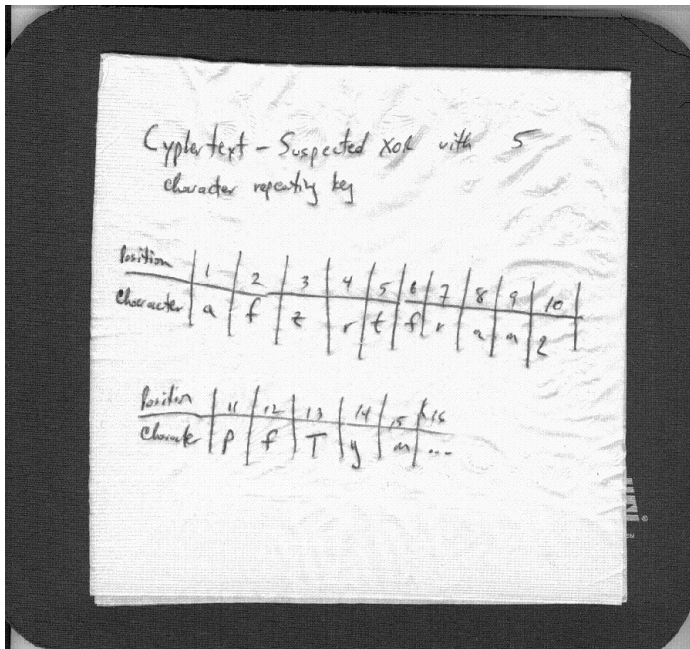 Cyphertext - Suspected XOR with 5
character repeating key
Position 1 2 3 4 5 6 7 8 9 10
Character a f z r t f r a n 2
Position 11 12 13 14 15 16
Character p f T y m ...